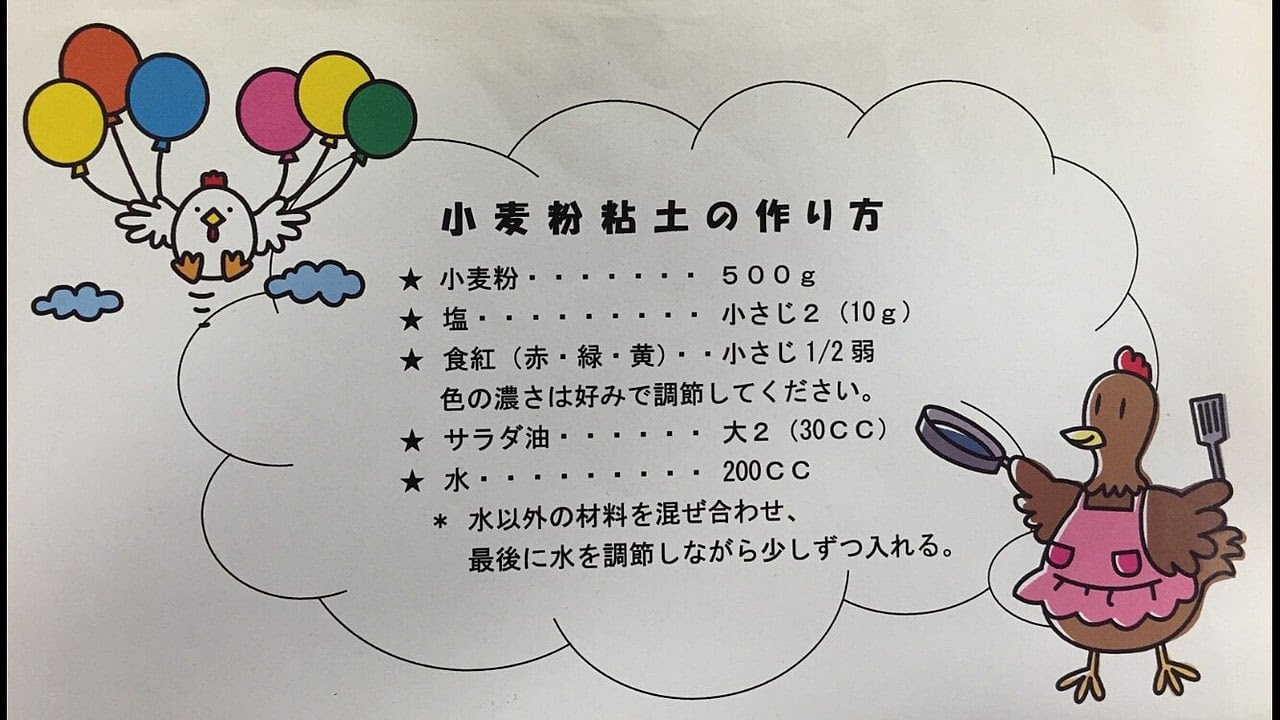 小麦粉粘土の作り方
★ 小麦粉・・・・・・・ ５００ｇ
★ 塩・・・・・・・・・ 小さじ２（10ｇ）
★ 食紅（赤・緑・黄）・・小さじ1/2弱
色の濃さは好みで調節してください。
★ サラダ油・・・・・・ 大２（30ＣＣ）
★ 水・・・・・・・・・ 200ＣＣ
＊ 水以外の材料を混ぜ合わせ、
最後に水を調節しながら少しずつ入れる。